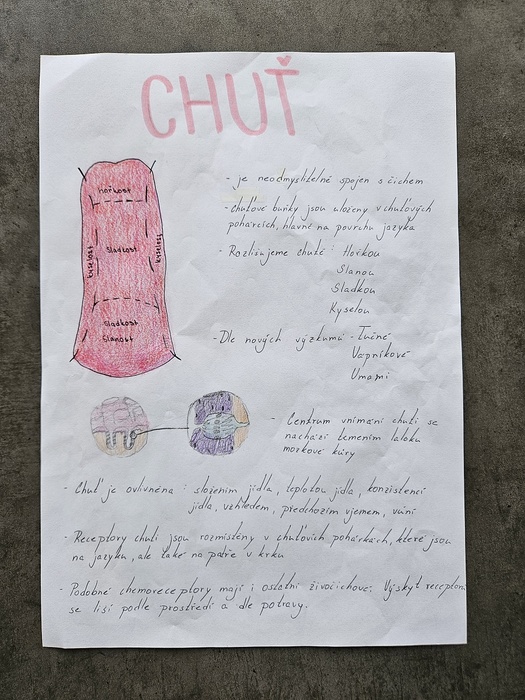 CHUŤ
Hořkost
kyselost
Sladkost
kyselost
Sladkost
Slanost
- je neodmyslitelně spojen s čichem
- chuťové buňky jsou uloženy v chuťových
pohárcích, hlavně na povrchu jazyka
- Rozlišujeme chutě : Hořkou
Slanou
Sladkou
Kyselou
- Dle nových výzkumů - Tučné
Vápníkové
Umami
- Centrum vnímání chuti se
nachází temením laloku
mozkové kůry
- Chuť je ovlivněna : složením jídla, teplotou jídla, konzistencí
jídla, vzhledem, předchozím vjemem, vůní
- Receptory chuti jsou rozmístěny v chuťových pohárkách, které jsou
na jazyku, ale také na patře v krku
- Podobné chemoreceptory mají i ostatní živočichové. Výskyt receptorů
se liší podle prostředí a dle potravy.